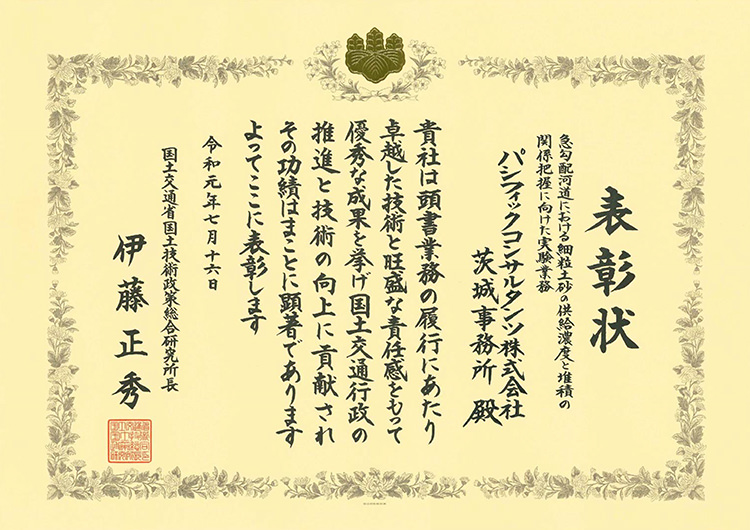 表彰状
急勾配河道における細粒土砂の供給濃度と堆積の
関係把握に向けた実験業務
パシフィックコンサルタンツ株式会社
茨城事務所 殿
貴社は頭書業務の履行にあたり
卓越した技術と旺盛な責任感をもって
優秀な成果を挙げ国土交通行政の
推進と技術の向上に貢献され
その功績はまことに顕著であります
よってここに表彰します
令和元年七月十六日
国土交通省国土技術政策総合研究所長
伊藤正秀